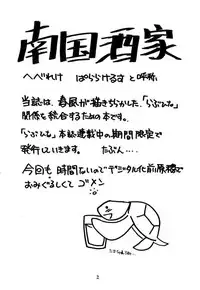 南国酒家
へべれけ ぱららけるす と呼称
当誌は、春風が描きちらかした、「らぶひな」
関係を統合するための本です。
「らぶひな」本誌連載中の期間限定で
発行していきます。 たぶん....
今回も 時間ないのでデジタル化前原稿で
おみぐるしくて ゴメン
2